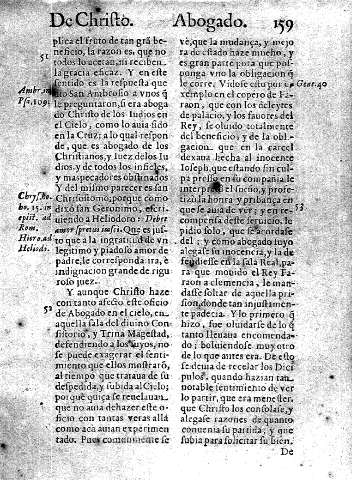 De Christo. Abogado. 159
plica el fruto de tan grã be-
neficio, la razon es, que no
todos lo quetan, ni reciben
la gracia eficaz. Y en este
sentido es la respuesta que
dio San Ambrosio a vnos q̃
le preguntaron, si era aboga
do Christo de los Iudios en
el Cielo, como lo auia sido
en la Cruz; a lo qual respon
de, que es abogado de los
Christianos, y Iuez de los Iu
dios, y de todos los infieles,
y mas pecadores obstinados
Y del mismo parecer es san
Chrysostomo, porque como
dixo san Geronimo, escri-
uiendo a Heliodoro: Debet
amor spretus irasci. Que es jus
to que a la ingratitud de vn
legitimo, y piadoso amor de
padre, le corresponda ira, è
indignacion grande de rigu
roso juez.
Y aunque Christo haze
con tanto afecto este oficio
de Abogado en el cielo, en
aquella sala del diuino Con
sistorio, y Trina Magestad,
defendiendo a los suyos, no
se puede exagerar el senti-
miento que ellos mostrarõ,
al tiempo que trataua de su
despedida, y subida al Cielo;
porque quiça se rezelauan,
que no auia de hazer este o-
ficio con tantas veras allà
como acà auian experimen
tado. Pues comunmente se
51
Ambr. in
Ps. 109.
Chrysost.
ho. 15. in
epist. ad
Rom.
Hiero. ad
Heliod.
52
vè, que la mudança, y mejo
ra de estado haze mucho, y
es gran parte para que pos-
ponga vno la obligacion q̃
le corre. Vidose esto por e-
xemplo en el copero de Fa-
raon, que con los deleytes
de palacio, y los fauores del
Rey, se oluidò totalmente
del beneficio, y de la obli-
gacion que en la carcel
dexaua hecha al inocente
Ioseph, que estando sin cul
pa preso en su compañia, le
interpretò el sueño, y profe-
tizò la honra, y priuança en
que se auia de ver; y en re-
compensa deste seruicio, le
pidio solo, que se acordase
del; y como abogado suyo
alegase su inocencia, y la de
fendiesse en la sala Real, pa
ra que mouido el Rey Fa-
raon a clemencia, le man-
dasse soltar de aquella pri-
sion, donde tan injustamen-
te padecia. Y lo primero q̃
hizo, fue oluidarse de lo q̃
tanto lleuaua encomenda-
do; boluiendose muy otro
de lo que antes era. De esto
se deuia de recelar los Disci
pulos, quando hazian tan
notable sentimiento de ver
lo partir, que era menester,
que Christo los consolase, y
alegase razones de quanto
conuenia su partida, y que
subia para solicitar su bien.
De
Gen. 40
53